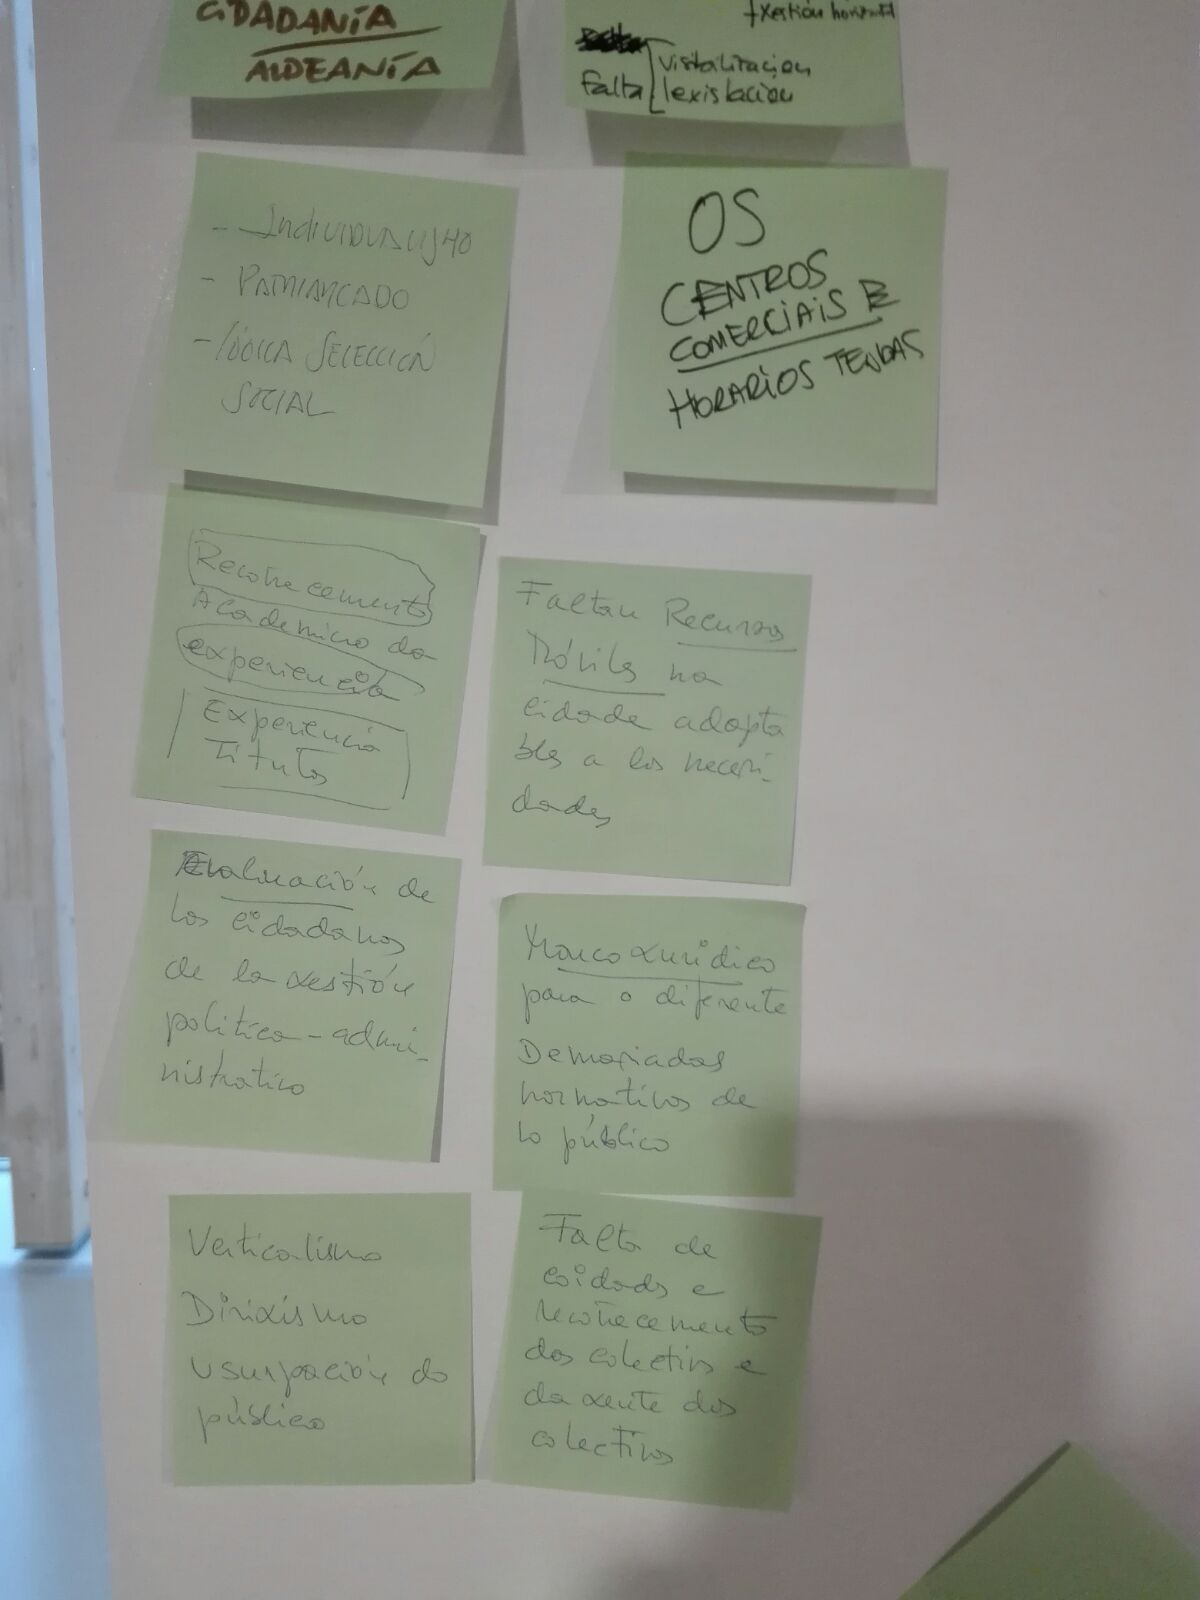 CIDADANÍA
ALDEANÍA
+ xestión horizontal
Falta
visibilización
lexislación
- INDIVIDUALISMO
- PATRIARCADO
- LÓXICA SELECCIÓN
SOCIAL
OS
CENTROS
COMERCIAIS E
HORARIOS TENDAS
Recoñecemento
Academico da
experiencia
Experiencia
Titulos
Faltan Recursos
Móviles na
cidade adapta
bles a las necesi-
dades
Evaluación de
los cidadanos
de la xestión
politica-admi-
nistrativa
Marco xurídico
para o diferente
Demasiadas
normativas de
lo público
Verticalismo
Dirixismo
Usurpación do
público
Falta de
coidados e
recoñecemento
dos colectivos e
da xente dos
colectivos